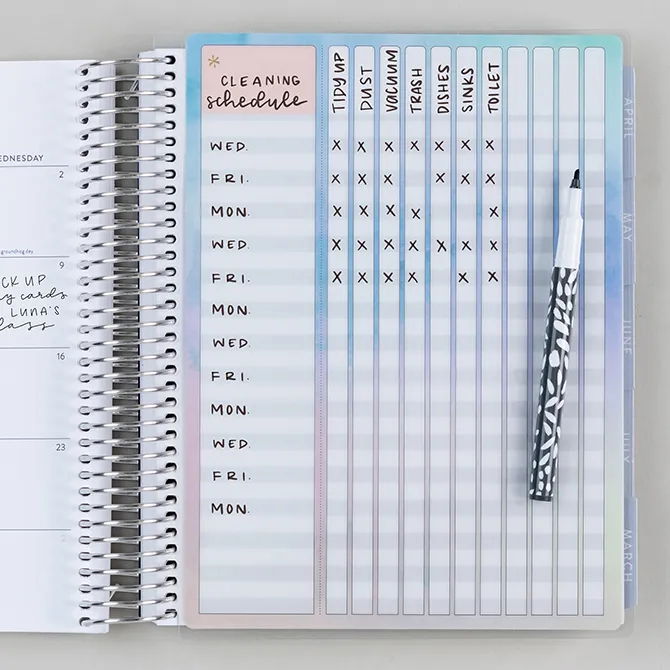 EDNESDAY
2
groundhog day
9
CK UP
y cards
LUNA'S
lass
16
23
2
CLEANING
schedule
TIDY UP DUST VACUUM TRASH DISHES SINKS TOILET
WED. X X X X X X X
FRI. X X X X X X
MON. X X X X X
WED. X X X X X X X
FRI. X X X X X X
MON.
WED.
FRI.
MON.
WED.
FRI.
MON.
APRIL
MAY
JUNE
JULY
MARCH